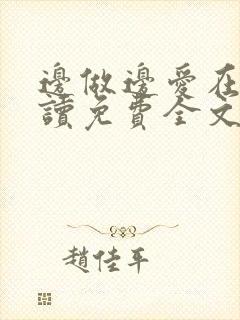 邊做邊愛在
讀免費全文
趙佳平